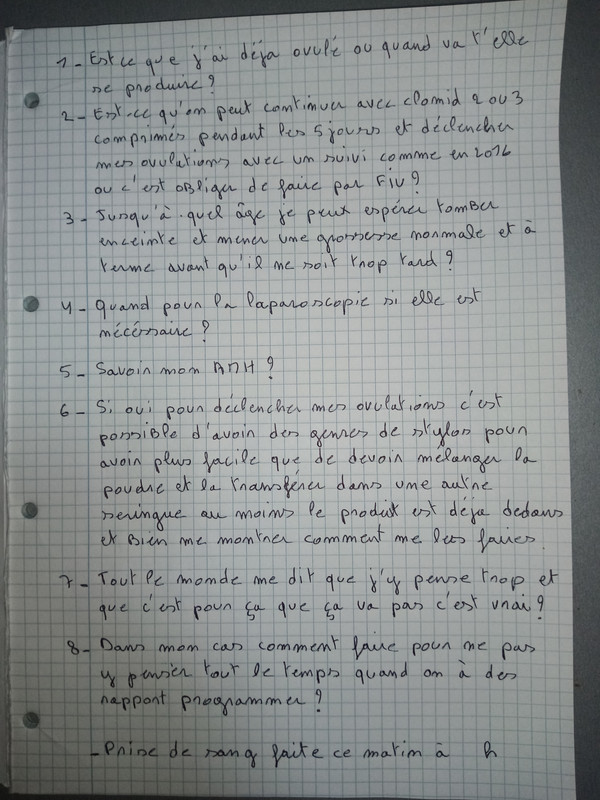 1- Est ce que j'ai déja ovulé ou quand va t'elle
se produire ?
2- Est-ce qu'on peut continuer avec clomid 2 ou 3
comprimés pendant les 5 jours et déclencher
mes ovulations avec un suivi comme en 2016
ou c'est obliger de faire par Fiv ?
3- Jusqu'à quel âge je peux espérer tomber
enceinte et mener une grossesse normale et à
terme avant qu'il ne soit trop tard ?
4- Quand pour la laparoscopie si elle est
nécéssaire ?
5- Savoir mon AMH ?
6- Si oui pour déclencher mes ovulations c'est
possible d'avoir des genres de stylos pour
avoir plus facile que de devoir mélanger la
poudre et la transférer dans une autre
seringue au moins le produit est déja dedans
et Bien me montrer comment me les faires.
7- Tout le monde me dit que j'y pense trop et
que c'est pour ça que ça va pas c'est vrai ?
8- Dans mon cas comment faire pour ne pas
y penser tout le temps quand on à des
rapport programmer ?
- Prise de sang faite ce matin à h